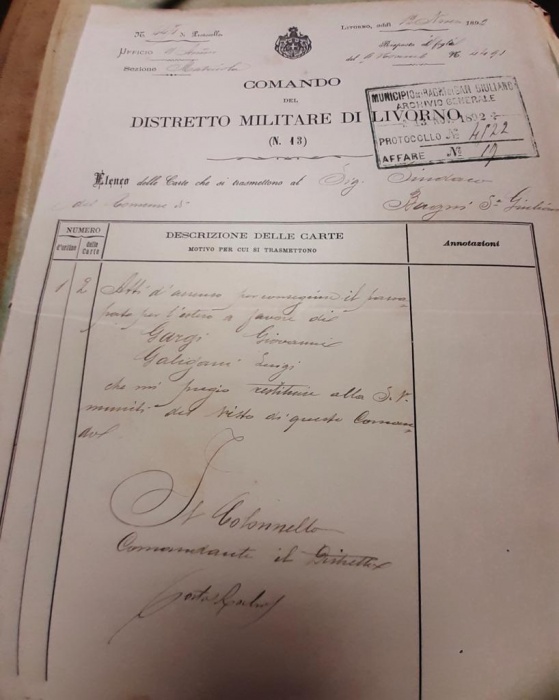 N. di Protocollo
Livorno, addì 189
UFFICIO
Risposta al foglio
Sezione Matricola
del N. 4491
COMANDO
DEL
DISTRETTO MILITARE DI LIVORNO
(N. 13)
MUNICIPIO DI BAGNI SAN GIULIANO
ARCHIVIO GENERALE
1892
PROTOCOLLO N° 4822
AFFARE N° 19
Elenco delle Carte che si trasmettono al Sig. Sindaco
del Comune di Bagni S. Giuliano
NUMERO
d'ordine
delle Carte
DESCRIZIONE DELLE CARTE
MOTIVO PER CUI SI TRASMETTONO
Annotazioni
1 2 Atti d'assenso per conseguire il passa
porto per l'estero a favore di
Gargi Giovanni
Galigani Luigi
che mi pregio restituire alla S. V.
muniti del visto di questo Coman
do
Il Colonnello
Comandante il Distretto